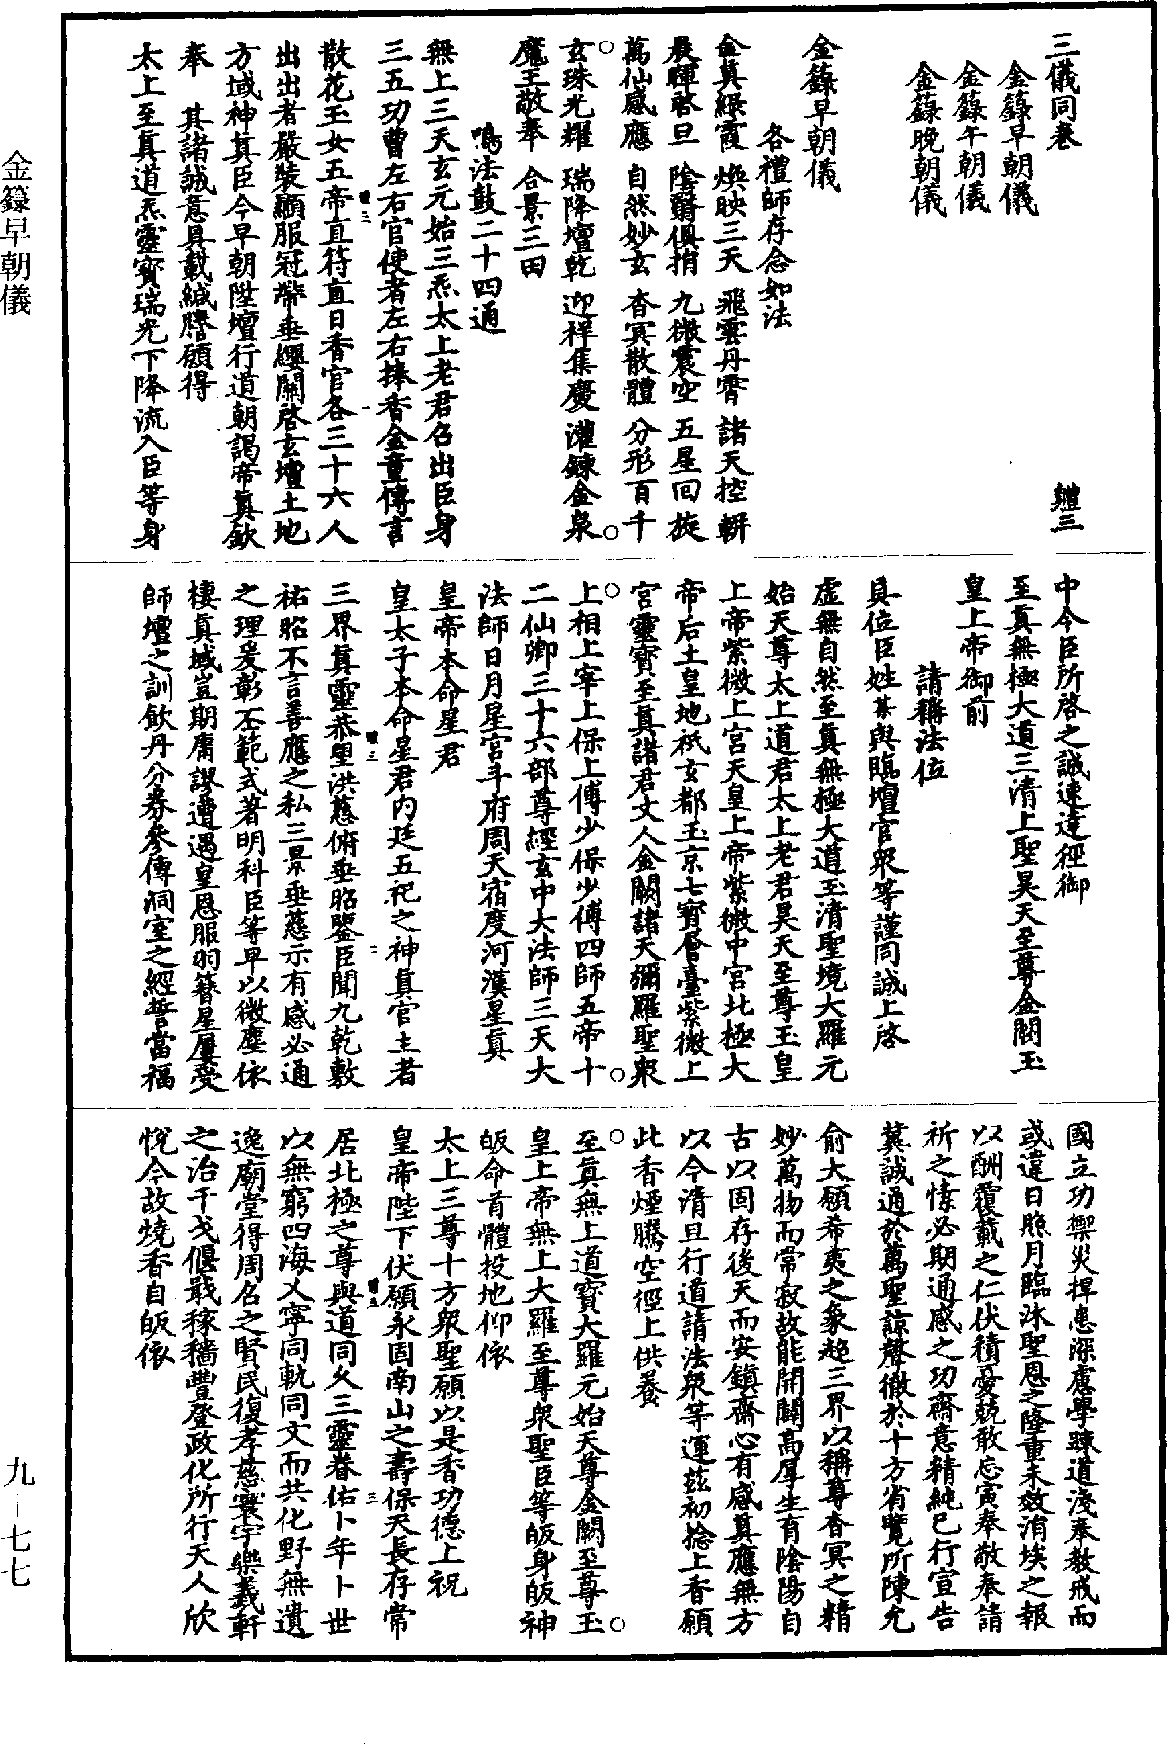 三儀同卷　　體三
金籙早朝儀
金籙午朝儀
金籙晚朝儀
金籙早朝儀
各禮師存念如法
金真緑霞　煥映三天　飛雲丹霄　諸天控軿
晨暉啓旦　陰翳俱捐　九微震空　五星回旋
萬仙感應　自然妙玄　杳冥散體　分形百千
玄珠光耀　瑞降壇乾　迎祥集慶　灌鍊金泉
魔王敬奉　合景三田
鳴法鼓二十四通
無上三天玄元始三炁太上老君召出臣身
三五功曹左右官使者左右捧香金童傳言
散花玉女五帝直符直日香官各三十六人
出出者嚴裝顯服冠帶垂纓關啓玄壇土地
方域神真臣今早朝陞壇行道朝謁帝真欽
奉　其諸誠意具載緘牋願得
太上至真道炁靈寶瑞光下降流入臣等身
中令臣所啓之誠速達徑御
至真無極大道三清上聖昊天至尊金闕玉
皇上帝御前
請稱法位
具位臣姓某與臨壇官衆等謹同誠上啓
虛無自然至真無極大道玉清聖境大羅元
始天尊太上道君太上老君昊天至尊玉皇
上帝紫微上宮天皇上帝紫微中宮北極大
帝后土皇地祇玄都玉京七寶層臺紫微上
宮靈寶至真諸君丈人金闕諸天彌羅聖衆
上相上宰上保上傅少保少傅四師五帝十
二仙卿三十六部尊經玄中大法師三天大
法師日月星宮斗府周天宿度河漢星真
皇帝本命星君
皇太子本命星君内廷五祀之神真官主者
三界真靈恭望洪慈俯垂昭鑒臣聞九乾敷
祐昭不言善應之私三景垂慈示有感必通
之理爰彰丕範式著明科臣等早以微塵依
棲真域豈期庸謬遭遇皇恩服羽簪星屢受
師壇之訓飲丹分券參傳洞室之經誓當福
國立功禦災捍患深慮學踈道淺奉教戒而
或違日照月臨沐聖恩之隆重未效涓埃之報
以酬覆載之仁伏積憂兢敢忘寅奉敬奉請
祈之悃必期通感之功齋意精純已行宣告
冀誠通於萬聖諒聲徹於十方省覽所陳允
俞大願希夷之象超三界以稱尊杳冥之精
妙萬物而常寂故能開闢高厚生有陰陽自
古以固存後天而安鎮齋心有感真應無方
以今清旦行道請法衆等運兹初捻上香願
此香煙騰空徑上供養
至真無上道寶大羅元始天尊金闕至尊玉
皇上帝無上大羅至尊衆聖臣等皈身皈神
皈命首體投地仰依
太上三尊十方衆聖願以是香功德上祝
皇帝陛下伏願永固南山之壽保天長存常
居北極之尊與道同久三靈眷佑卜年卜世
以無窮四海乂寧同軌同文而共化野無遺
逸廟堂得周召之賢民復孝慈寰宇樂羲軒
之治干戈偃戢稼穡豐登政化所行天人欣
悅今故燒香自皈依
金籙早朝儀
九－七七